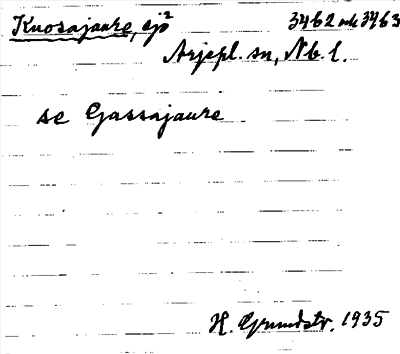 Kuosajaure, sjö² 3462 o 3463
Arjepl. sn, Nb. l.
se Gassajaure
H. Grundstr. 1935